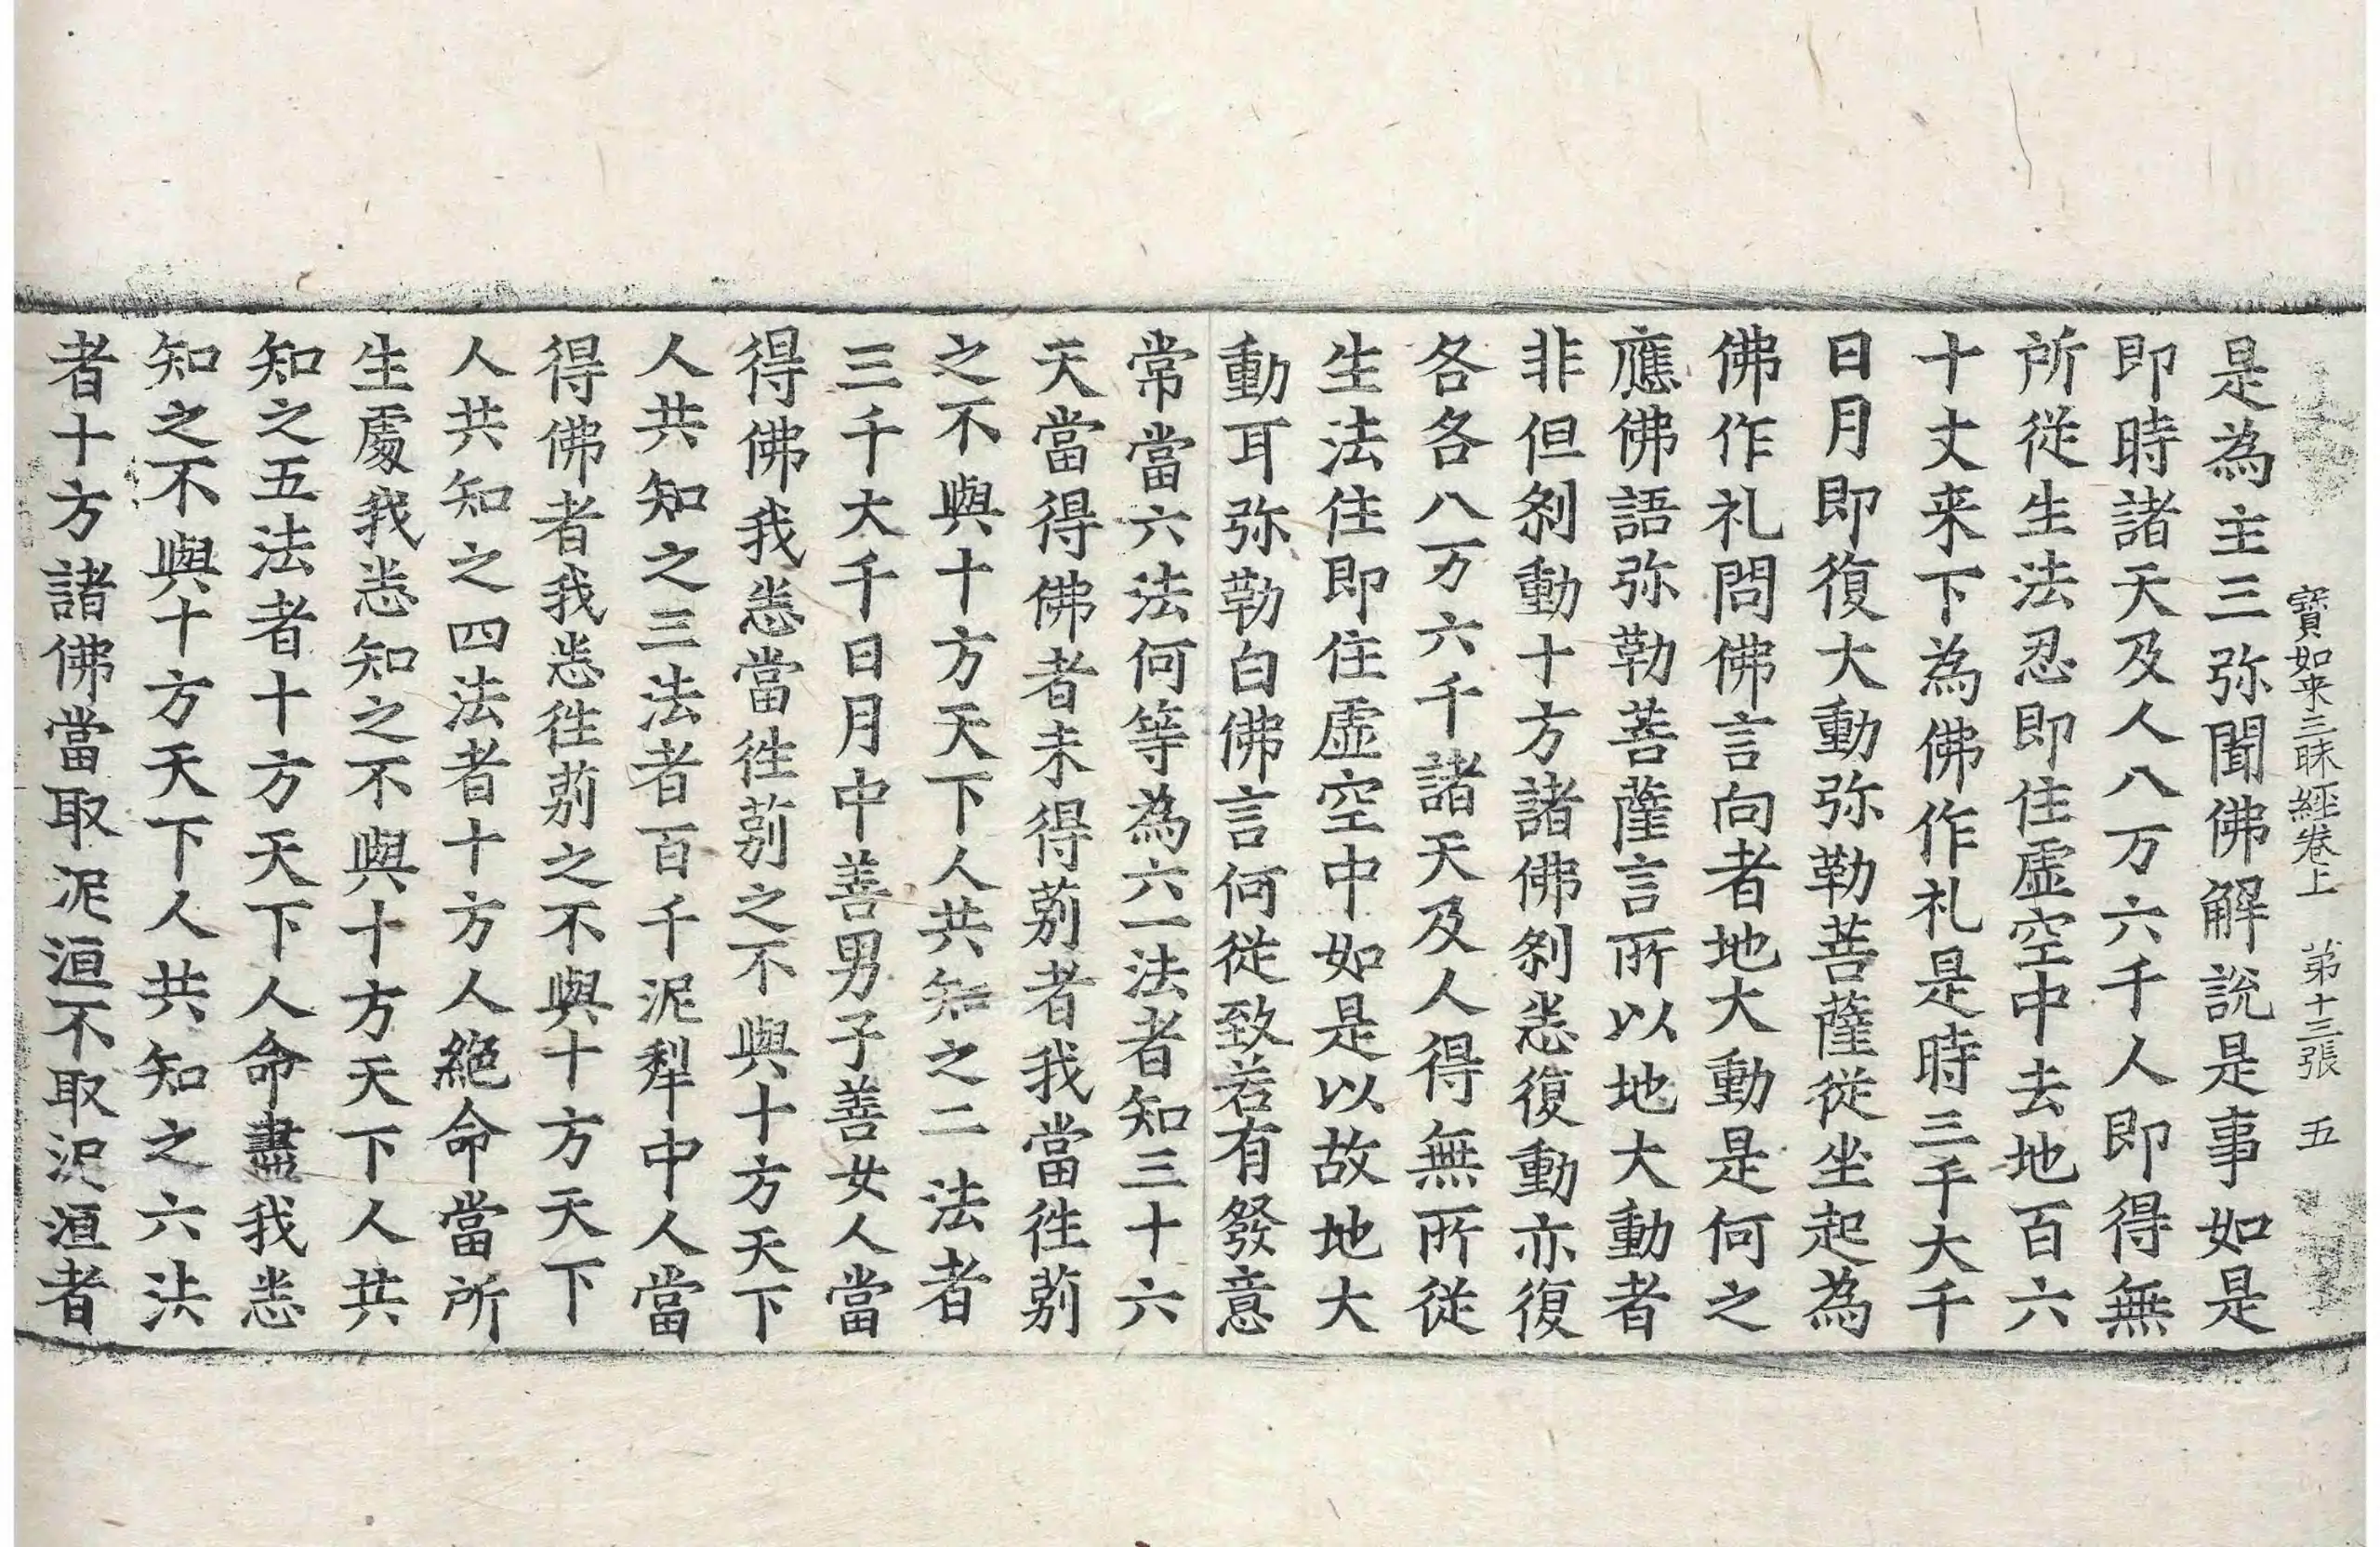 寶如来三昧經卷上　第十三張　五
是為主三弥聞佛解說是事如是
即時諸天及人八万六千人即得無
所從生法忍即住虛空中去地百六
十丈来下為佛作礼是時三千大千
日月即復大動弥勒菩薩從坐起為
佛作礼問佛言向者地大動是何之
應佛語弥勒菩薩言所以地大動者
非但刹動十方諸佛刹悉復動亦復
各各八万六千諸天及人得無所從
生法住即住虛空中如是以故地大
動耳弥勒白佛言何從致若有發意
常當六法何等為六一法者知三十六
天當得佛者未得莂者我當徃莂
之不與十方天下人共知之二法者
三千大千日月中善男子善女人當
得佛我悉當徃莂之不與十方天下
人共知之三法者百千泥犁中人當
得佛者我悉徃莂之不與十方天下
人共知之四法者十方人絕命當所
生處我悉知之不與十方天下人共
知之五法者十方天下人命盡我悉
知之不與十方天下人共知之六法
者十方諸佛當取泥洹不取泥洹者